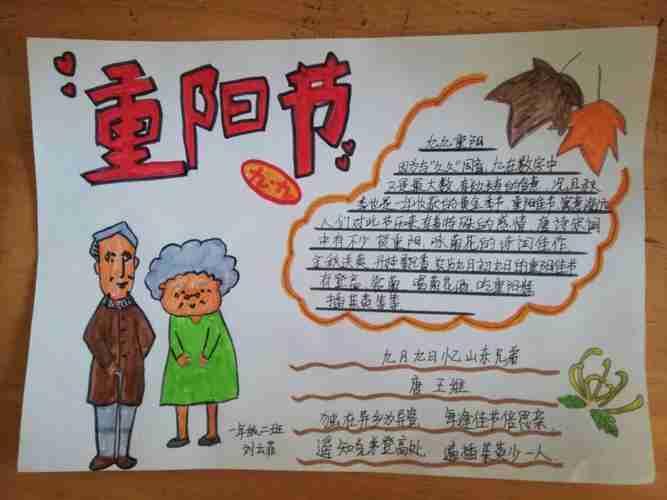 重阳节
九·九
九九重阳
因为与"久久"同音,九在数字中
又是最大数,有长久长寿的含意,况且秋
季也是一年收获的黄金季节,重阳佳节,寓意深远
人们对此节历来有着特殊的感情,唐诗宋词
中有不少贺重阳,咏菊花的诗词佳作
在登高,赏菊,喝菊花酒,吃重阳糕
插茱萸等等
九月九日忆山东兄弟
唐 王维
独在异乡为异客,每逢佳节倍思亲
遥知兄弟登高处,遍插茱萸少一人.
一年级二班